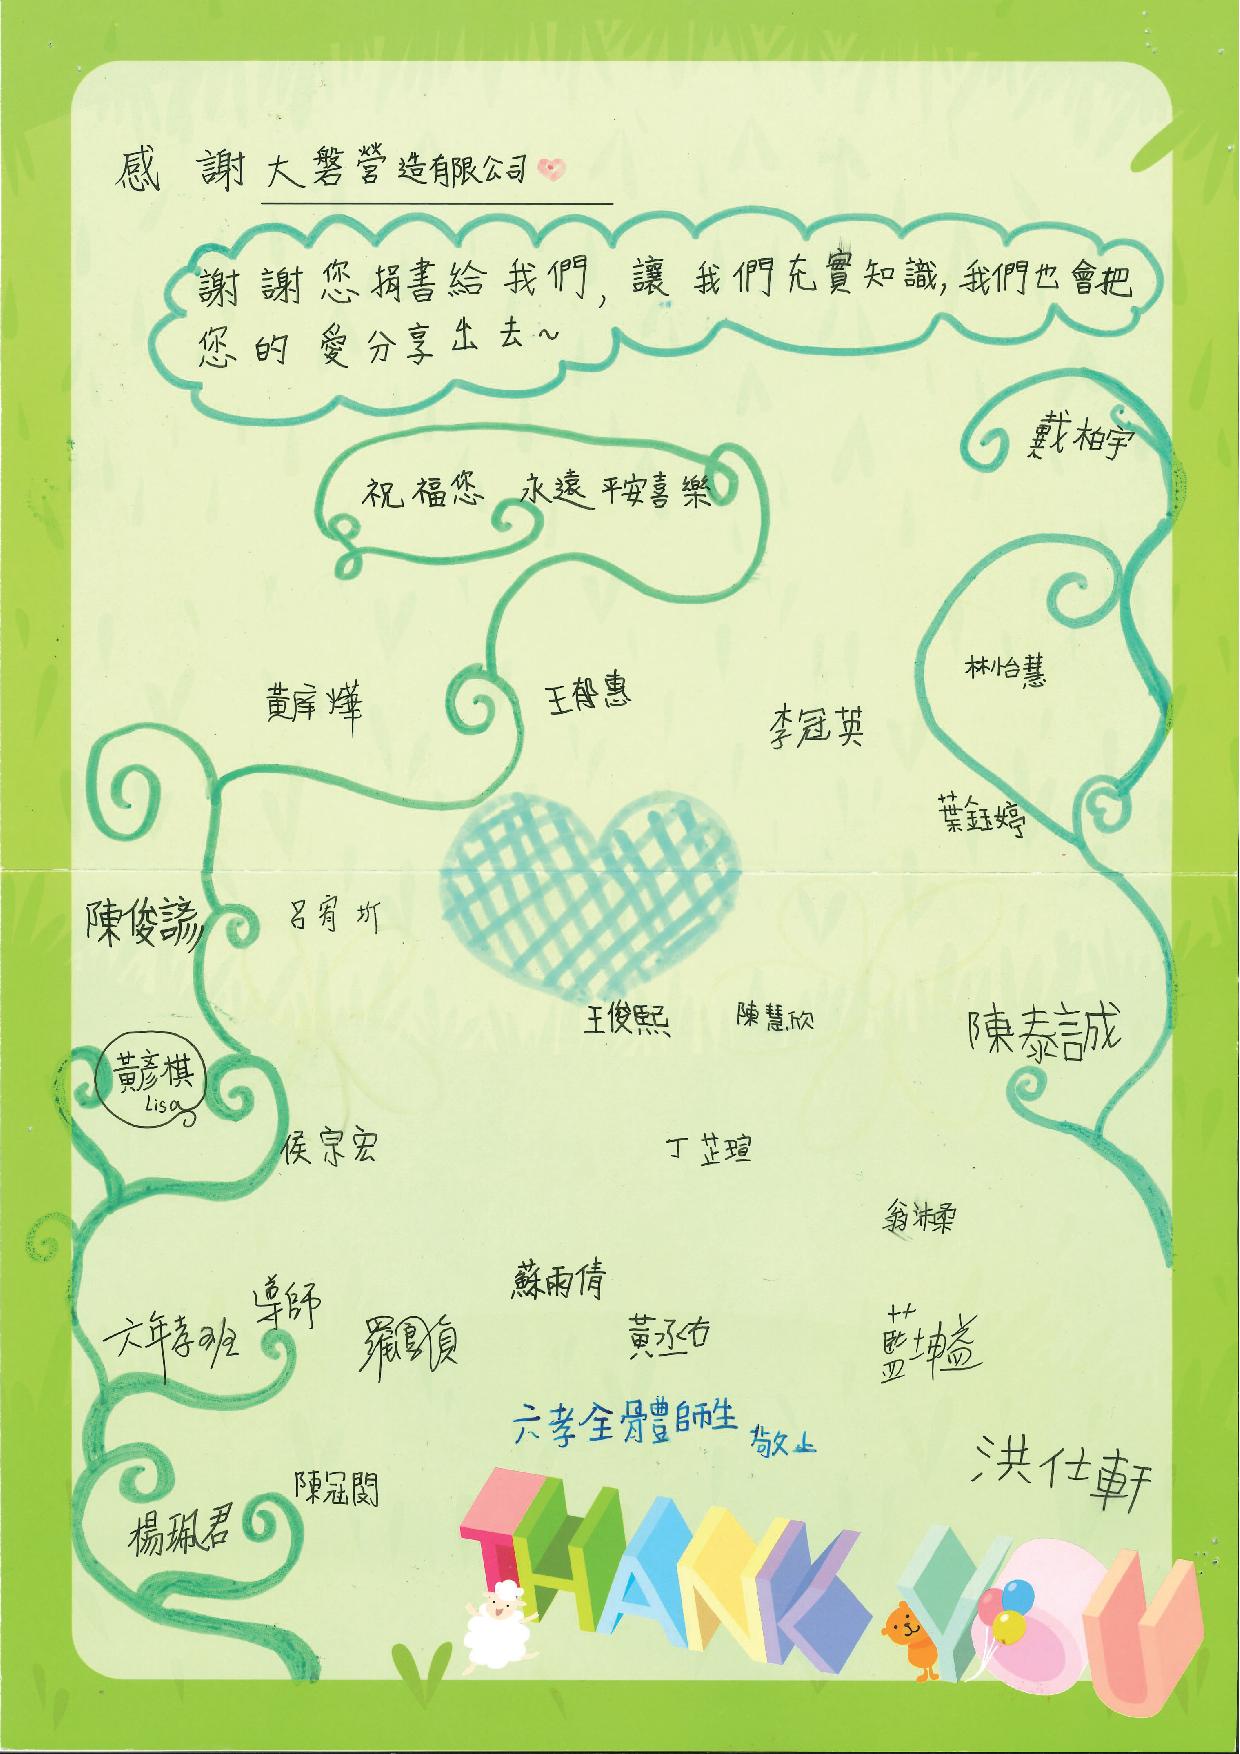 感謝大磐營造有限公司
謝謝您捐書給我們,讓我們充實知識,我們也會把
您的愛分享出去~
祝福您 永遠平安喜樂
戴柏宇
林怡慧
黃庠燁
王郁惠
李冠英
葉鈺婷
陳俊諺
呂宥圻
王俊熙
陳慧欣
陳泰誠
黃彥棋
Lisa
侯宗宏
丁芷瑄
翁沛柔
蘇雨倩
六年孝班
導師
羅鳳貞
黃丞右
藍坤益
六孝全體師生
敬上
洪仕軒
陳冠閔
楊珮君
THANK YOU